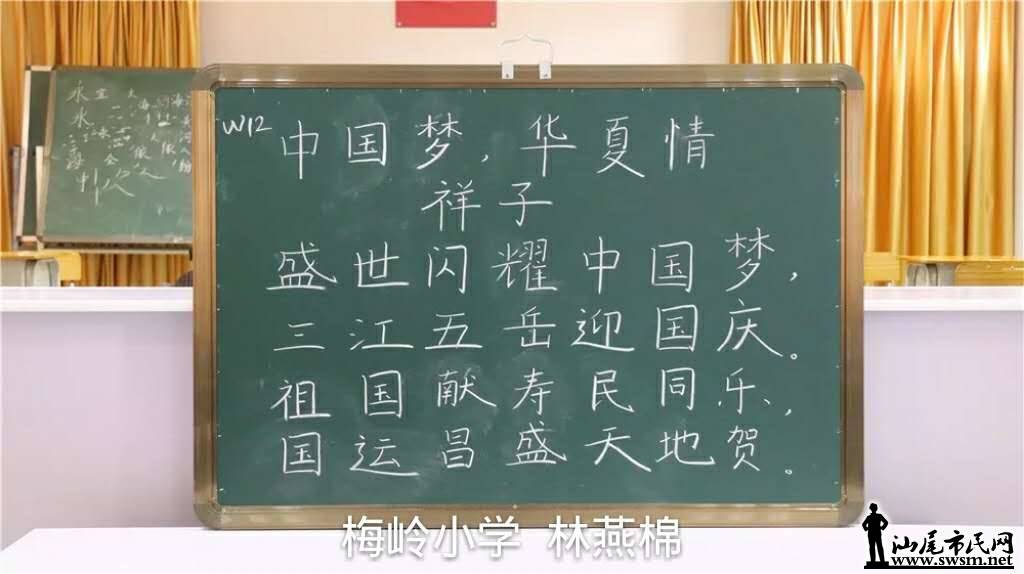 W12
中国梦，华夏情
祥子
盛世闪耀中国梦，
三江五岳迎国庆。
祖国献寿民同乐，
国运昌盛天地贺。
梅岭小学 林燕棉
汕尾市民网
www.swsm.net